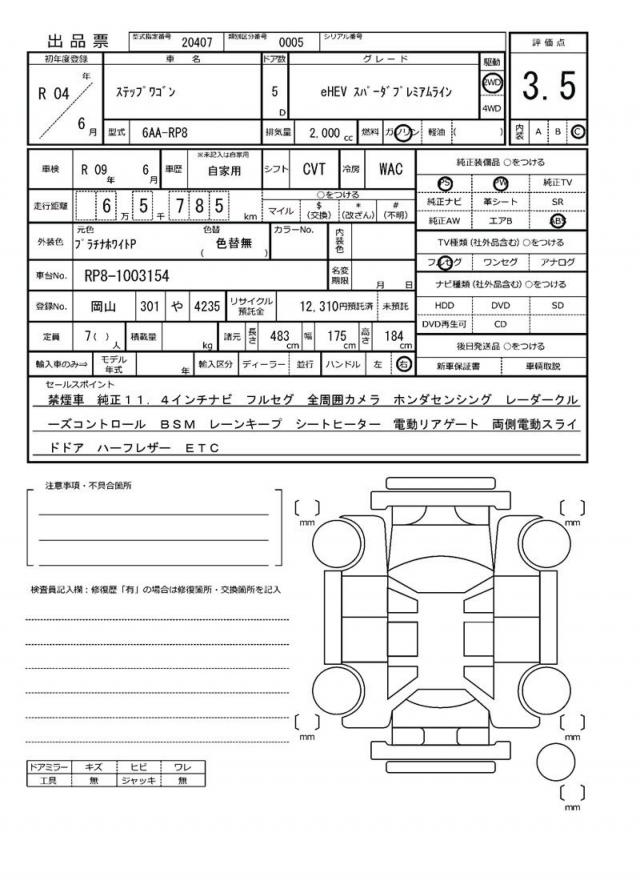 出品票 型式指定番号 20407 類別区分番号 0005 シリアル番号
評価点
3.5
内装 A B C
初年度登録 車名 ドア数 グレード 駆動
R 04 年 6 月 ステップワゴン 5 D eHEV スパーダプレミアムライン 2WD
4WD
型式 6AA-RP8 排気量 2,000 cc 燃料 ガソリン 軽油 ( )
車検 R 09 年 6 月 車歴 ※未記入は自家用 自家用 シフト CVT 冷房 WAC
走行距離 6 万 5 千 7 8 5 km
○をつける
マイル $(交換) *(改ざん) #(不明)
外装色 元色 プラチナホワイトP 色替 ( 色替無 ) カラーNo. 内装色
車台No. RP8-1003154 名変期限 月 日
登録No. 岡山 301 や 4235 リサイクル預託金 12,310円預託済 未預託
定員 7( ) 人 積載量 kg 諸元 長さ 483 cm 幅 175 cm 高さ 184 cm
輸入車のみ⇒ モデル年式 年 輸入区分 ディーラー 並行 ハンドル 左 右
純正装備品 ○をつける
PS PW 純正TV
純正ナビ 革シート SR
純正AW エアB ABS
TV種類(社外品含む)○をつける
フルセグ ワンセグ アナログ
ナビ種類(社外品含む)○をつける
HDD DVD SD
DVD再生可 CD
後日発送品 ○をつける
新車保証書 車輌取説
セールスポイント
禁煙車 純正11.4インチナビ フルセグ 全周囲カメラ ホンダセンシング レーダークル
ーズコントロール BSM レーンキープ シートヒーター 電動リアゲート 両側電動スライ
ドドア ハーフレザー ETC
注意事項・不具合箇所
検査員記入欄:修復歴「有」の場合は修復箇所・交換箇所を記入
ドアミラー キズ ヒビ ワレ
工具 無 ジャッキ 無
[ ] mm
[ ] mm
[ ] mm
[ ] mm
[ ] mm